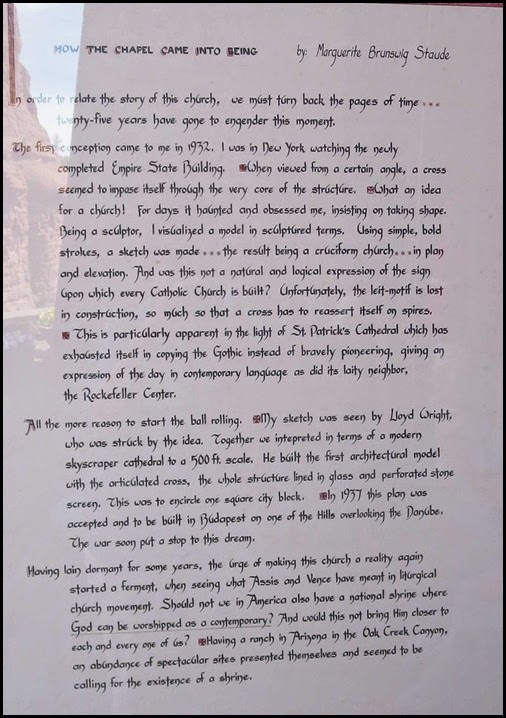 HOW THE CHAPEL CAME INTO BEING by: Marguerite Brunswig Staude
In order to relate the story of this church, we must turn back the pages of time...
twenty-five years have gone to engender this moment.
The first conception came to me in 1932. I was in New York watching the newly
completed Empire State Building. When viewed from a certain angle, a cross
seemed to impose itself through the very core of the structure. What an idea
for a church! For days it haunted and obsessed me, insisting on taking shape.
Being a sculptor, I visualized a model in sculptured terms. Using simple, bold
strokes, a sketch was made...the result being a cruciform church...in plan
and elevation. And was this not a natural and logical expression of the sign
upon which every Catholic Church is built? Unfortunately, the leit-motif is lost
in construction, so much so that a cross has to reassert itself on spires.
This is particularly apparent in the light of St. Patrick's Cathedral which has
exhausted itself in copying the Gothic instead of bravely pioneering, giving an
expression of the day in contemporary language as did its laity neighbor,
the Rockefeller Center.
All the more reason to start the ball rolling. My sketch was seen by Lloyd Wright,
who was struck by the idea. Together we intepreted in terms of a modern
skyscraper cathedral to a 500 ft. scale. He built the first architectural model
with the articulated cross, the whole structure lined in glass and perforated stone
screen. This was to encircle one square city block. In 1937 this plan was
accepted and to be built in Budapest on one of the Hills overlooking the Danube.
The war soon put a stop to this dream.
Having lain dormant for some years, the urge of making this church a reality again
started a ferment, when seeing what Assis and Vence have meant in liturgical
church movement. Should not we in America also have a national shrine where
God can be worshipped as a contemporary? And would this not bring Him closer to
each and every one of us? Having a ranch in Arizona in the Oak Creek Canyon,
an abundance of spectacular sites presented themselves and seemed to be
calling for the existence of a shrine.